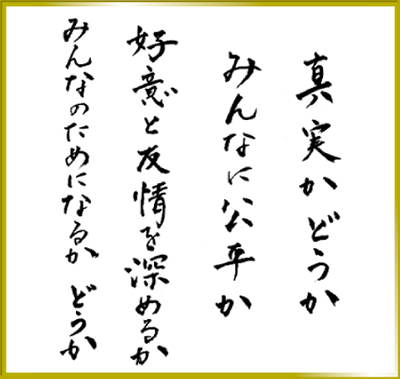 真実かどうか
みんなに公平か
好意と友情を深めるか
みんなのためになるか どうか